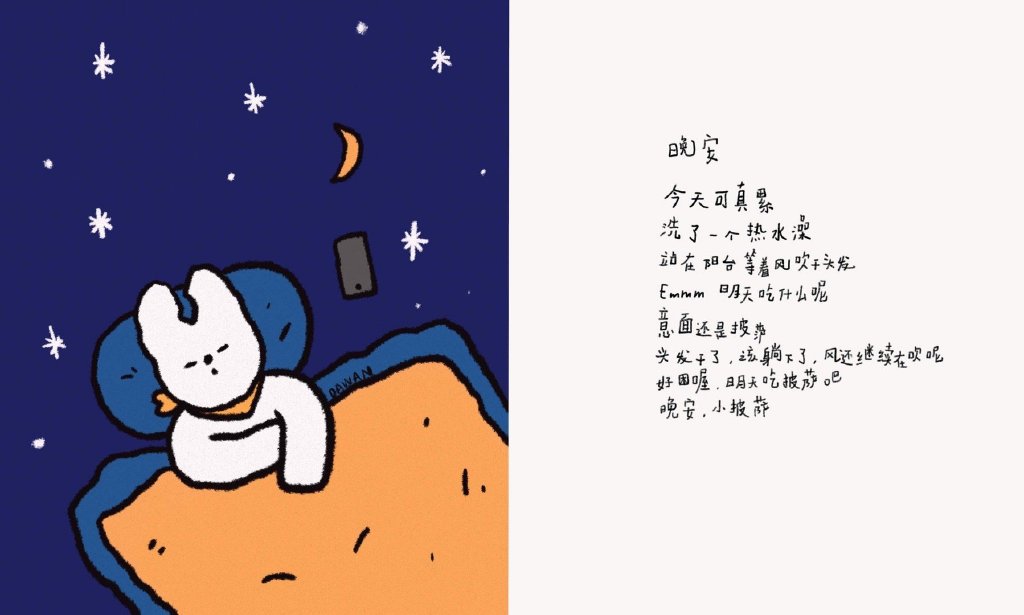 DAWAN
晚安
今天可真累
洗了一个热水澡
站在阳台等着风吹干头发
Emmm 明天吃什么呢
意面还是披萨
头发干了，该躺下了，风还继续在吹呢
好困喔，明天吃披萨吧
晚安，小披萨